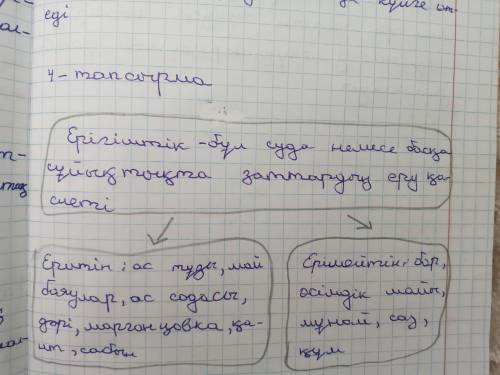 күйге өт-
еді
4-тапсырма
Ерігіштік -бұл суда немесе басқа
сұйықтықта заттардың еру қа-
сиеті
Еритін: ас тұзы, май
бояулар, ас содасы,
дәрі, марганцовка, қа-
нт, сабын
Ерімейтін: бор,
өсімдік майы,
мұнай, саз,
құм